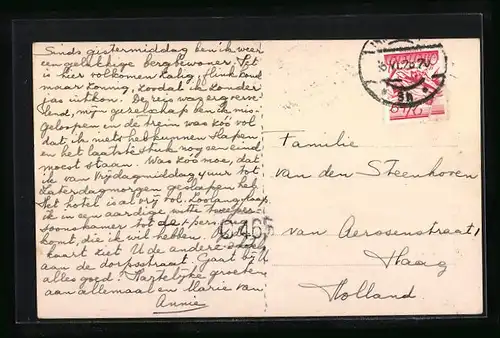 Sinds gistermiddag ben ik weer
een gelukkige bergbewoner. Het
is hier volkomen kalig, flink koud
maar zonnig, zoodat ik zonder
jas uitkon. De reis was
lend, mijn gezelschap ben ik mis-
geloopen en de trein was zóó vol
dat ik niets heb kunnen slapen
en het laatste stuk nog een eind
moest staan. Was zóó moe, dat
ik van Vrijdagmiddag 4 uur tot
Zaterdagmorgen geslapen heb.
Het hotel is al vrij vol. Zoolang slaap
ik in een aardige witte twee pers
soonskamer tot de 1 pers.
komt, die ik wil hebben. Op de
kaart ziet U de andere
aan de dorpsstraat. Gaat bij U
alles goed? Hartelijke groeten
aan allemaal en Marie van
Annie
Familie
van den Steenhoven
van Aerssenstraat 1
Haag
Holland